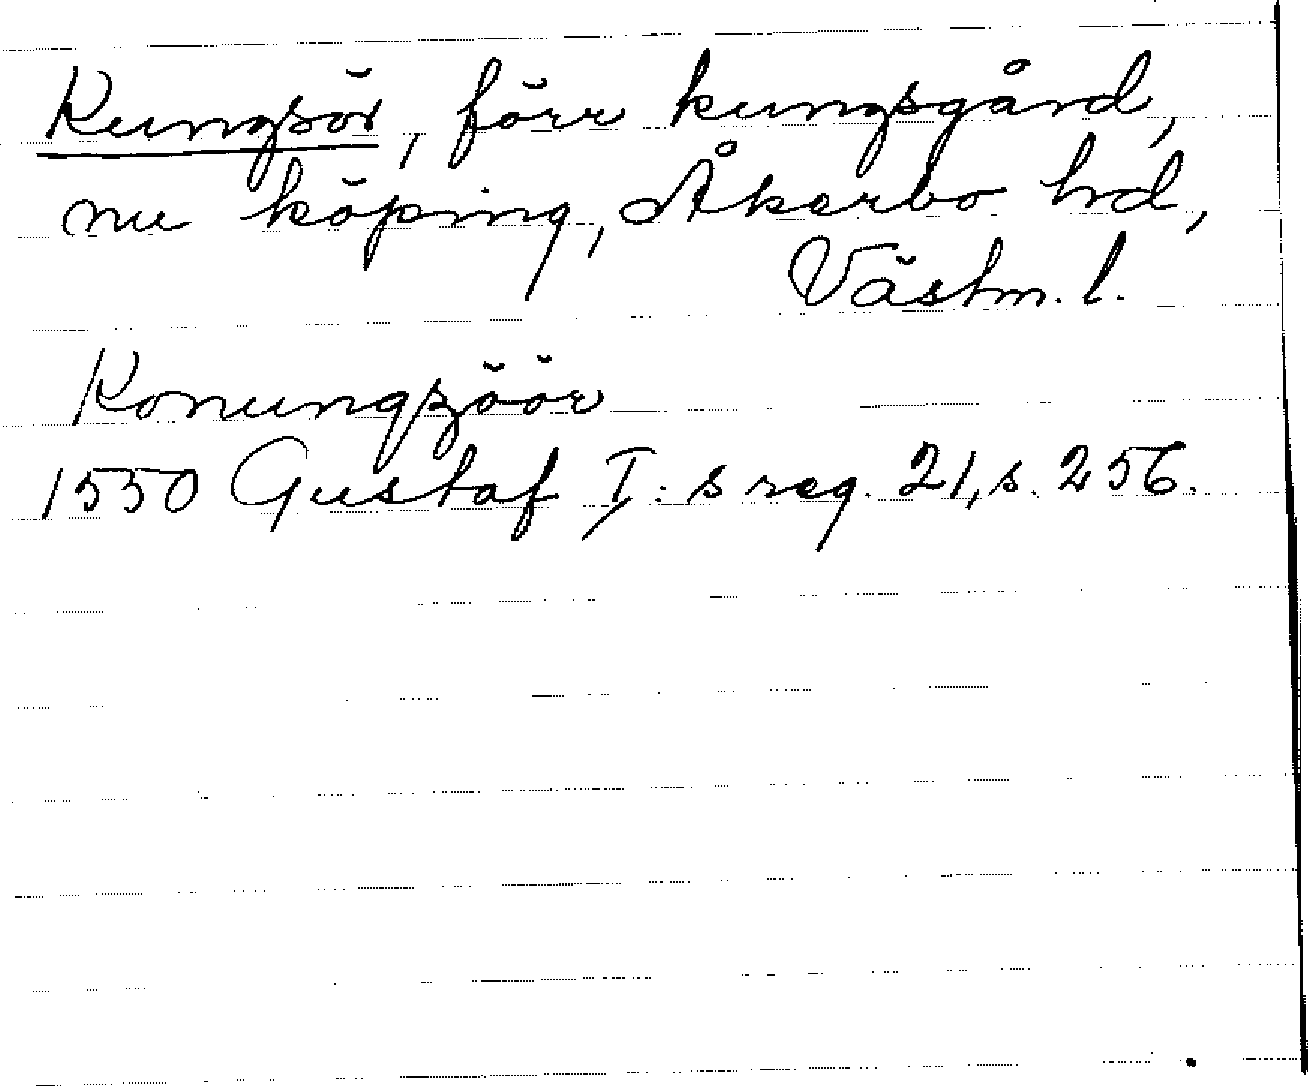 Kungsör, förr kungsgård,
nu köping, Åkerbo hd,
Västm. l.
Konungzöör
1550 Gustaf I:s reg. 21, s. 256.